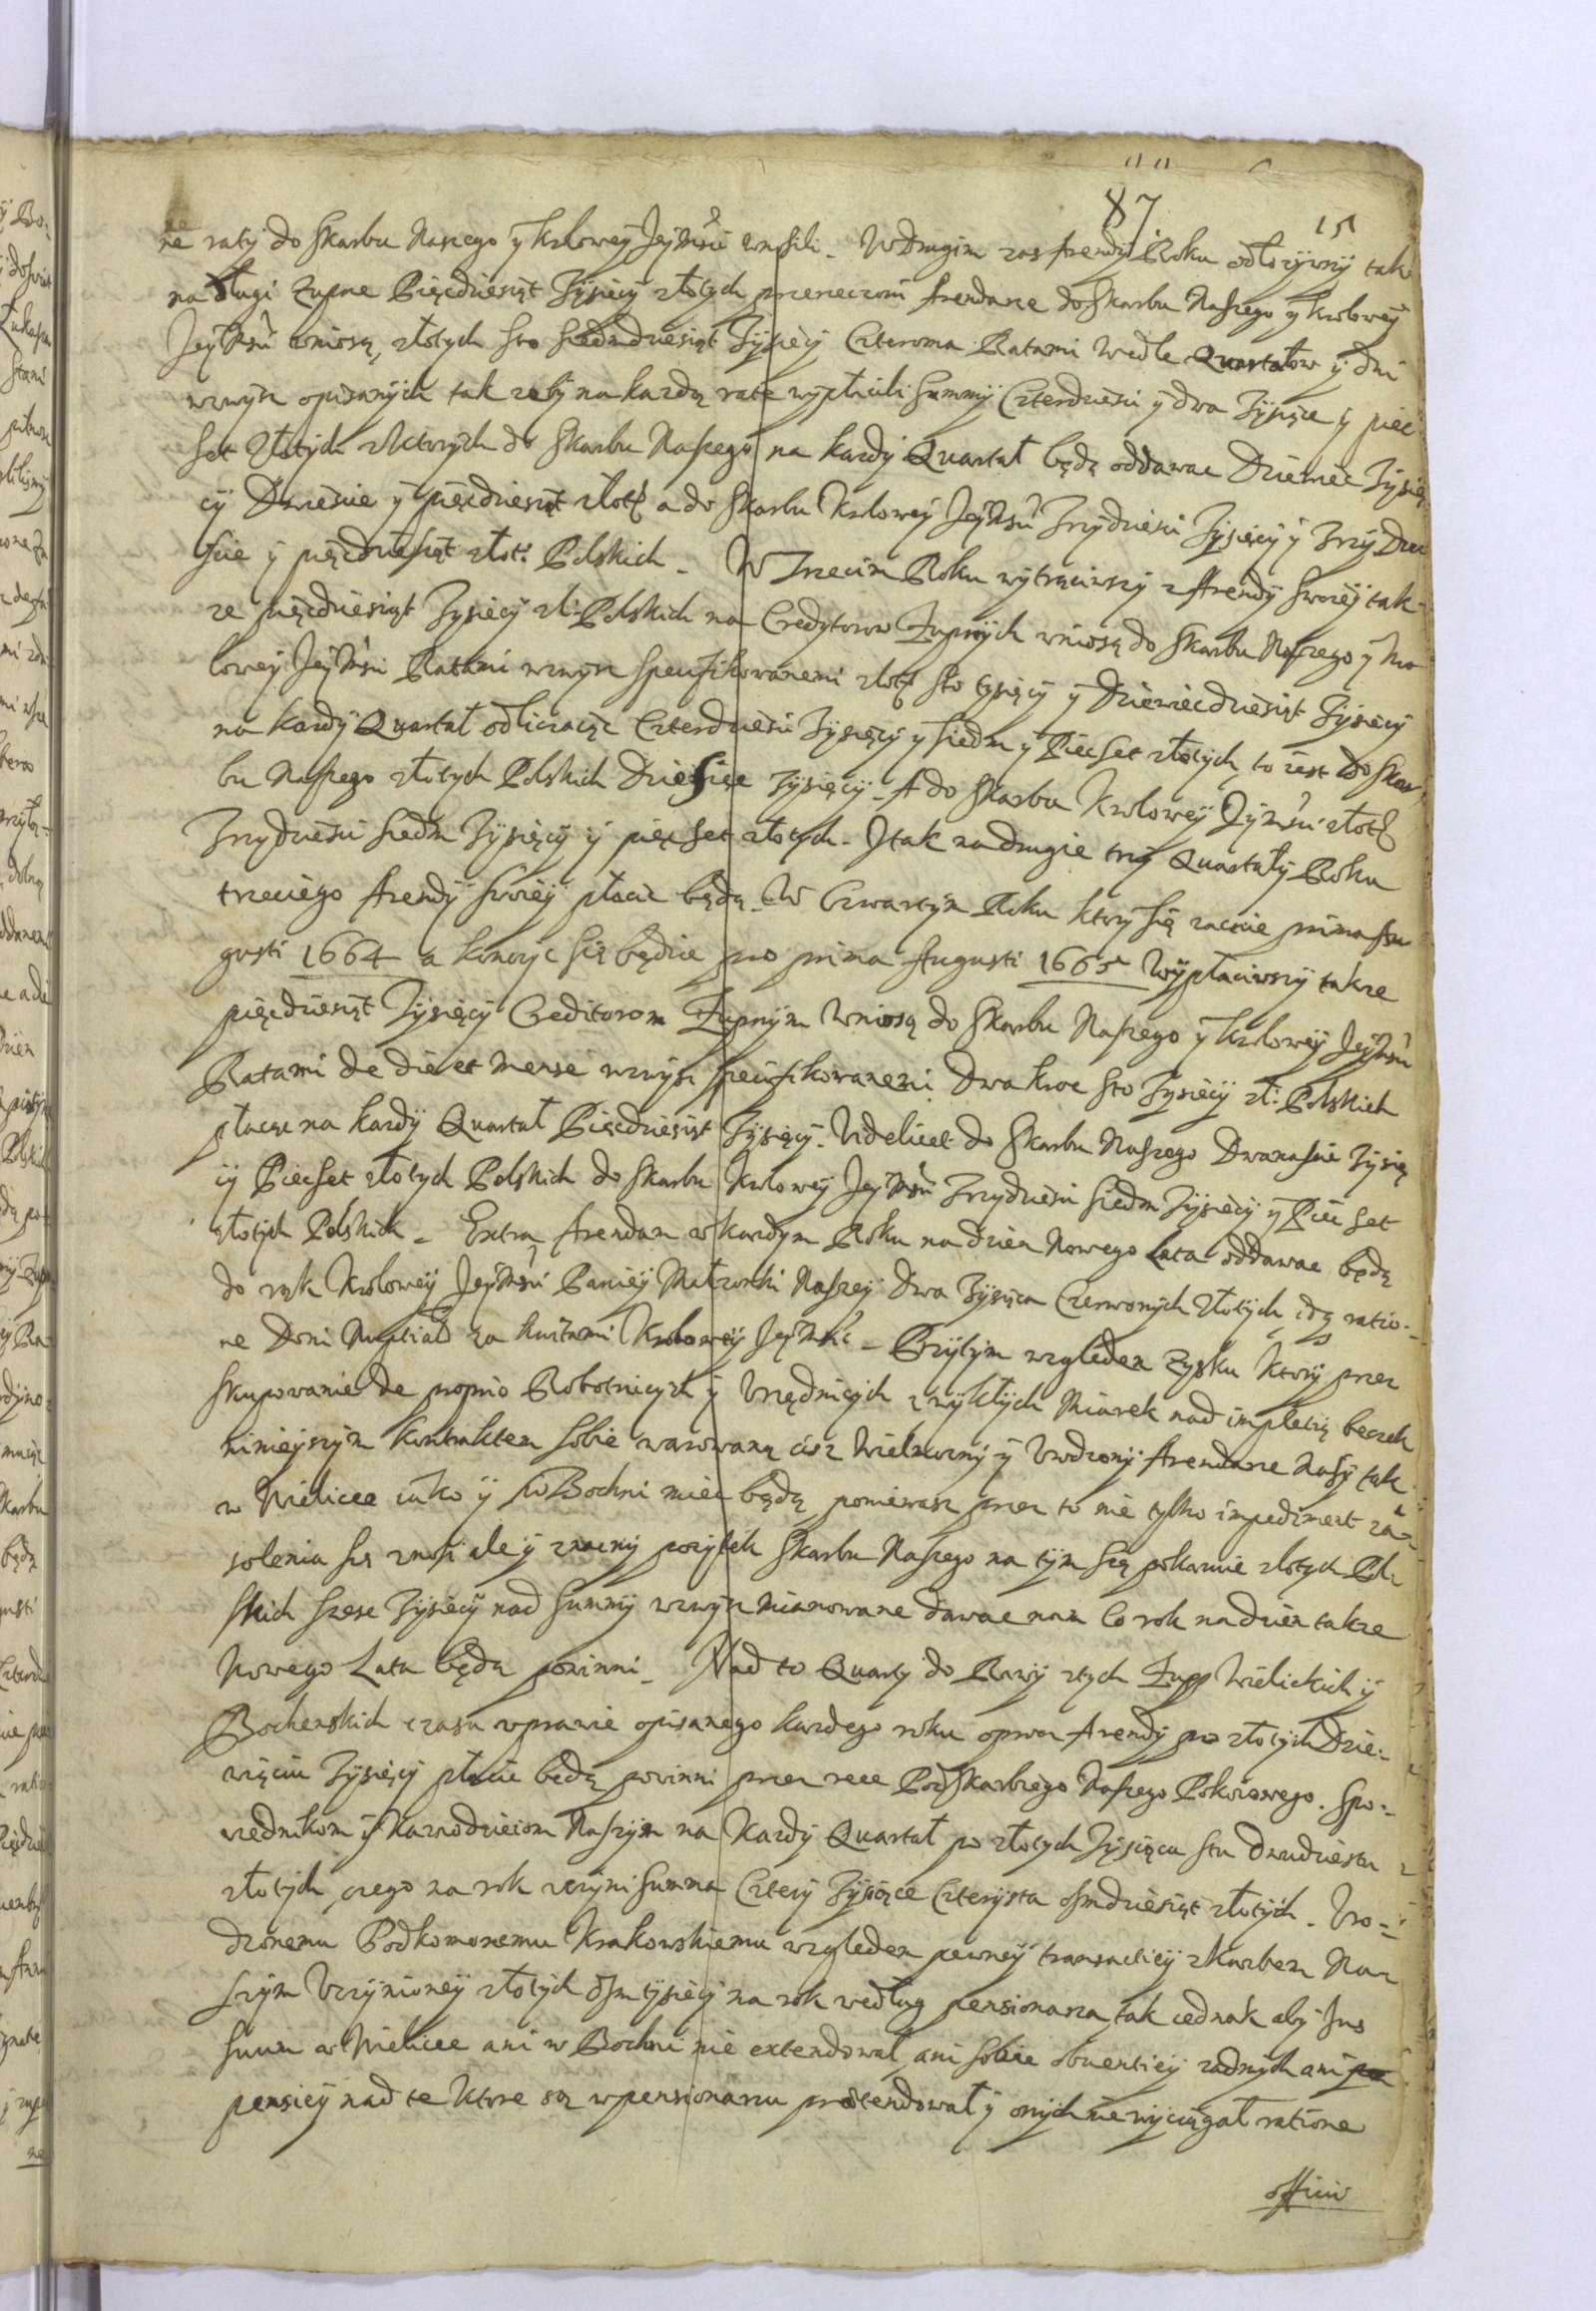 87
15
ne raty do Skarbu Naszego y Krolowey JeyMsci wnosili. W Drugim zas Arendy Roku odłozywszy takze
na dlugi Zupne Pięcdziesiąt Tysięcy złotych przerzeczoni Arendarze do Skarbu Naszego y Krolowey
JeyMsci wniosą, złotych sto siedmdziesiąt Tysięcy Czteroma Ratami wedle Quartałow y dni
wzwysz opisanych tak zeby na kazdą rate wypłacili Summy Czterdziesci y dwa Tysiące y piec
set złotych z ktorych do Skarbu Naszego na kazdy Quartał będą oddawac Dziewięc Tysię
cy Dwiescie y pięcdziesiąt złot. a do Skarbu Krolowey JeyMsci Trzydziesci Tysięcy y Trzy Dwie
scie y pięcdziesiąt złot: Polskich. W Trzecim Roku wytrąciwszy z Arendy swoiey tak
ze pięcdziesiąt Tysięcy zł: Polskich na Credytorow Zupnych wniosą do Skarbu Naszego y Kro
lowey JeyMsci Ratami wzwysz specifikowanemi złot. sto tysięcy y Dziewiecdziesiąt Tysięcy
na kazdy Quartał odliczaiąc Czterdziesci Tysięcy y siedm y Piecset złotych, to iest do Skar
bu Naszego złotych Polskich Dziesięc Tysięcy. A do Skarbu Krolowey JeyMsci złot.
Trzydziesci siedm Tysięcy y pięcset złotych. Itak za drugie trzy Quartały Roku
trzeciego Arendy swoiey płacic będą. W Czwartym Roku ktory się zacznie prima Au
gusti 1664 a konczyc się będzie pro prima Augusti 1665 Wypłaciwszy takze
pięcdziesiąt Tysięcy Creditorom Zupnym Wniosą do Skarbu Naszego y Krolowey JeyMsci
Ratami de die et mense wzwysz specifikowanemi Dwakroc sto Tysięcy zł: Polskich
płacąc na kazdy Quartał Pięcdziesiąt Tysięcy. Videlicet do Skarbu Naszego Dwanascie Tysię
cy Piecset złotych Polskich do Skarbu Krolowey JeyMsci Trzydziesci siedm Tysięcy y Piec set
złotych Polskich. Extra Arendam w kazdym Roku na dzien Nowego Lata oddawac będą
do rąk Krolowey JeyMsci Paniey Małzonki Naszey Dwa Tysiąca Czerwonych Złotych idą ratio-
ne Doni Nuptial za kwitami Krolowey JeyMsci. Przytym względem Zysku ktory przez
skupowanie de proprio Robotniczych y Urzędniczych zwykłych Miarek nad impletią beczek
ninieyszym Kontraktem sobie warowaną ciz Wielmozny y Urodzony Arendarze Naszy tak
w Wieliczce iako y w Bochni miec będą poniewasz przez to nie tylko impediment za-
solenia się znosi ale y znaczny pozytek Skarbu Naszego na tym się pokazuie złotych Pol
skich szesc Tysięcy nad Summy wzwysz mianowane dawac nam Co rok na dzien takze
Nowego Lata będą powinni. Nad to Quarty do Rawy z tych Zupp Wielickich y
Bochenskich czasu w prawie opisanego kazdego roku oprocz Arendy po złotych Dzie-
więciu Tysięcy płacic będą powinni przez ręce Podskarbiego Naszego Pokoiowego. Spo-
wiednikom y Kaznodzieiom Naszym na Kazdy Quartał po złotych Tysiącu stu dwudziestu
złotych, czego na rok uczyni summa Cztery Tysiące Czterysta osmdziesiąt złotych. Uro-
dzonemu Podkomorzemu Krakowskiemu względem pewney transactiey z Skarbem Na
szym Uczynioney złotych osm tysięcy na rok według pensionarza, tak iednak aby Jus
suum w Wieliczce ani w Bochni nie extendował, ani sobie obventiey zadnych ani
pensiey nad te ktore są w pensionarzu praetendował y onych nie wyciągał ratione
officii